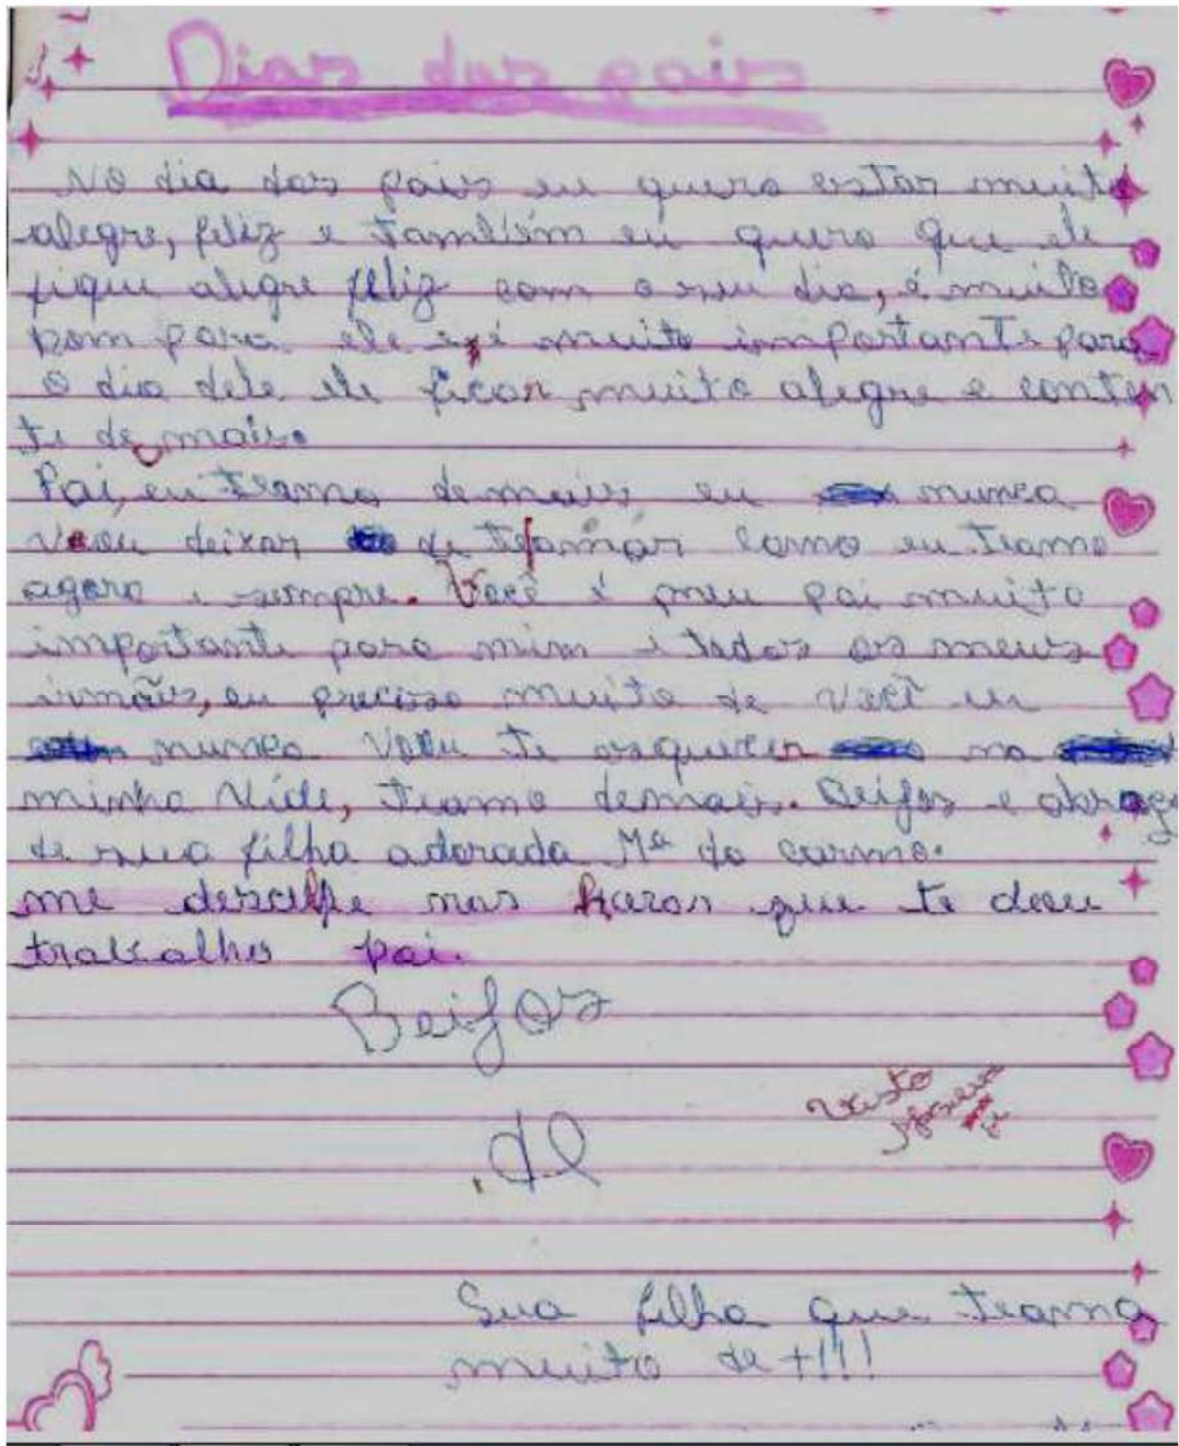 Dias dos pais
No dia dos pais eu quero estar muito
alegre, feliz e também eu quero que ele
fique alegre feliz com o seu dia, é muito
bom para ele e é muito importante para
o dia dele ele ficar muito alegre e conten
te de mais.
Pai, eu teamo demais eu nunca
vou deixar de te amar como eu teamo
agora e sempre. Você é meu pai muito
importante para mim e todos os meus
irmãos, eu preciso muito de você eu
nunca vou te esquecer na
minha vide, teamo demais. Beijos e abraç
de sua filha adorada Mª do carmo.
me desculpe mas que te deu
trabalho pai.
Beijos
de
Visto
Sua filha que teamo
muito de +!!!